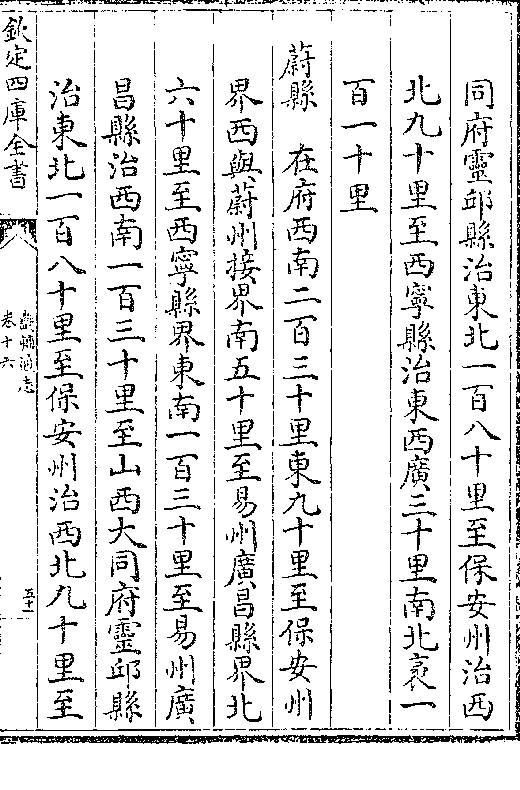 同府靈邱縣治東北一百八十里至保安州治西
北九十里至西寧縣治東西廣三十里南北袤一
百一十里
蔚縣　在府西南二百三十里東九十里至保安州
界西與蔚州接界南五十里至易州廣昌縣界北
六十里至西寧縣界東南一百三十里至易州廣
昌縣治西南一百三十里至山西大同府靈邱縣
治東北一百八十里至保安州治西北九十里至
欽定四庫全書
畿輔通志
卷十六
五十